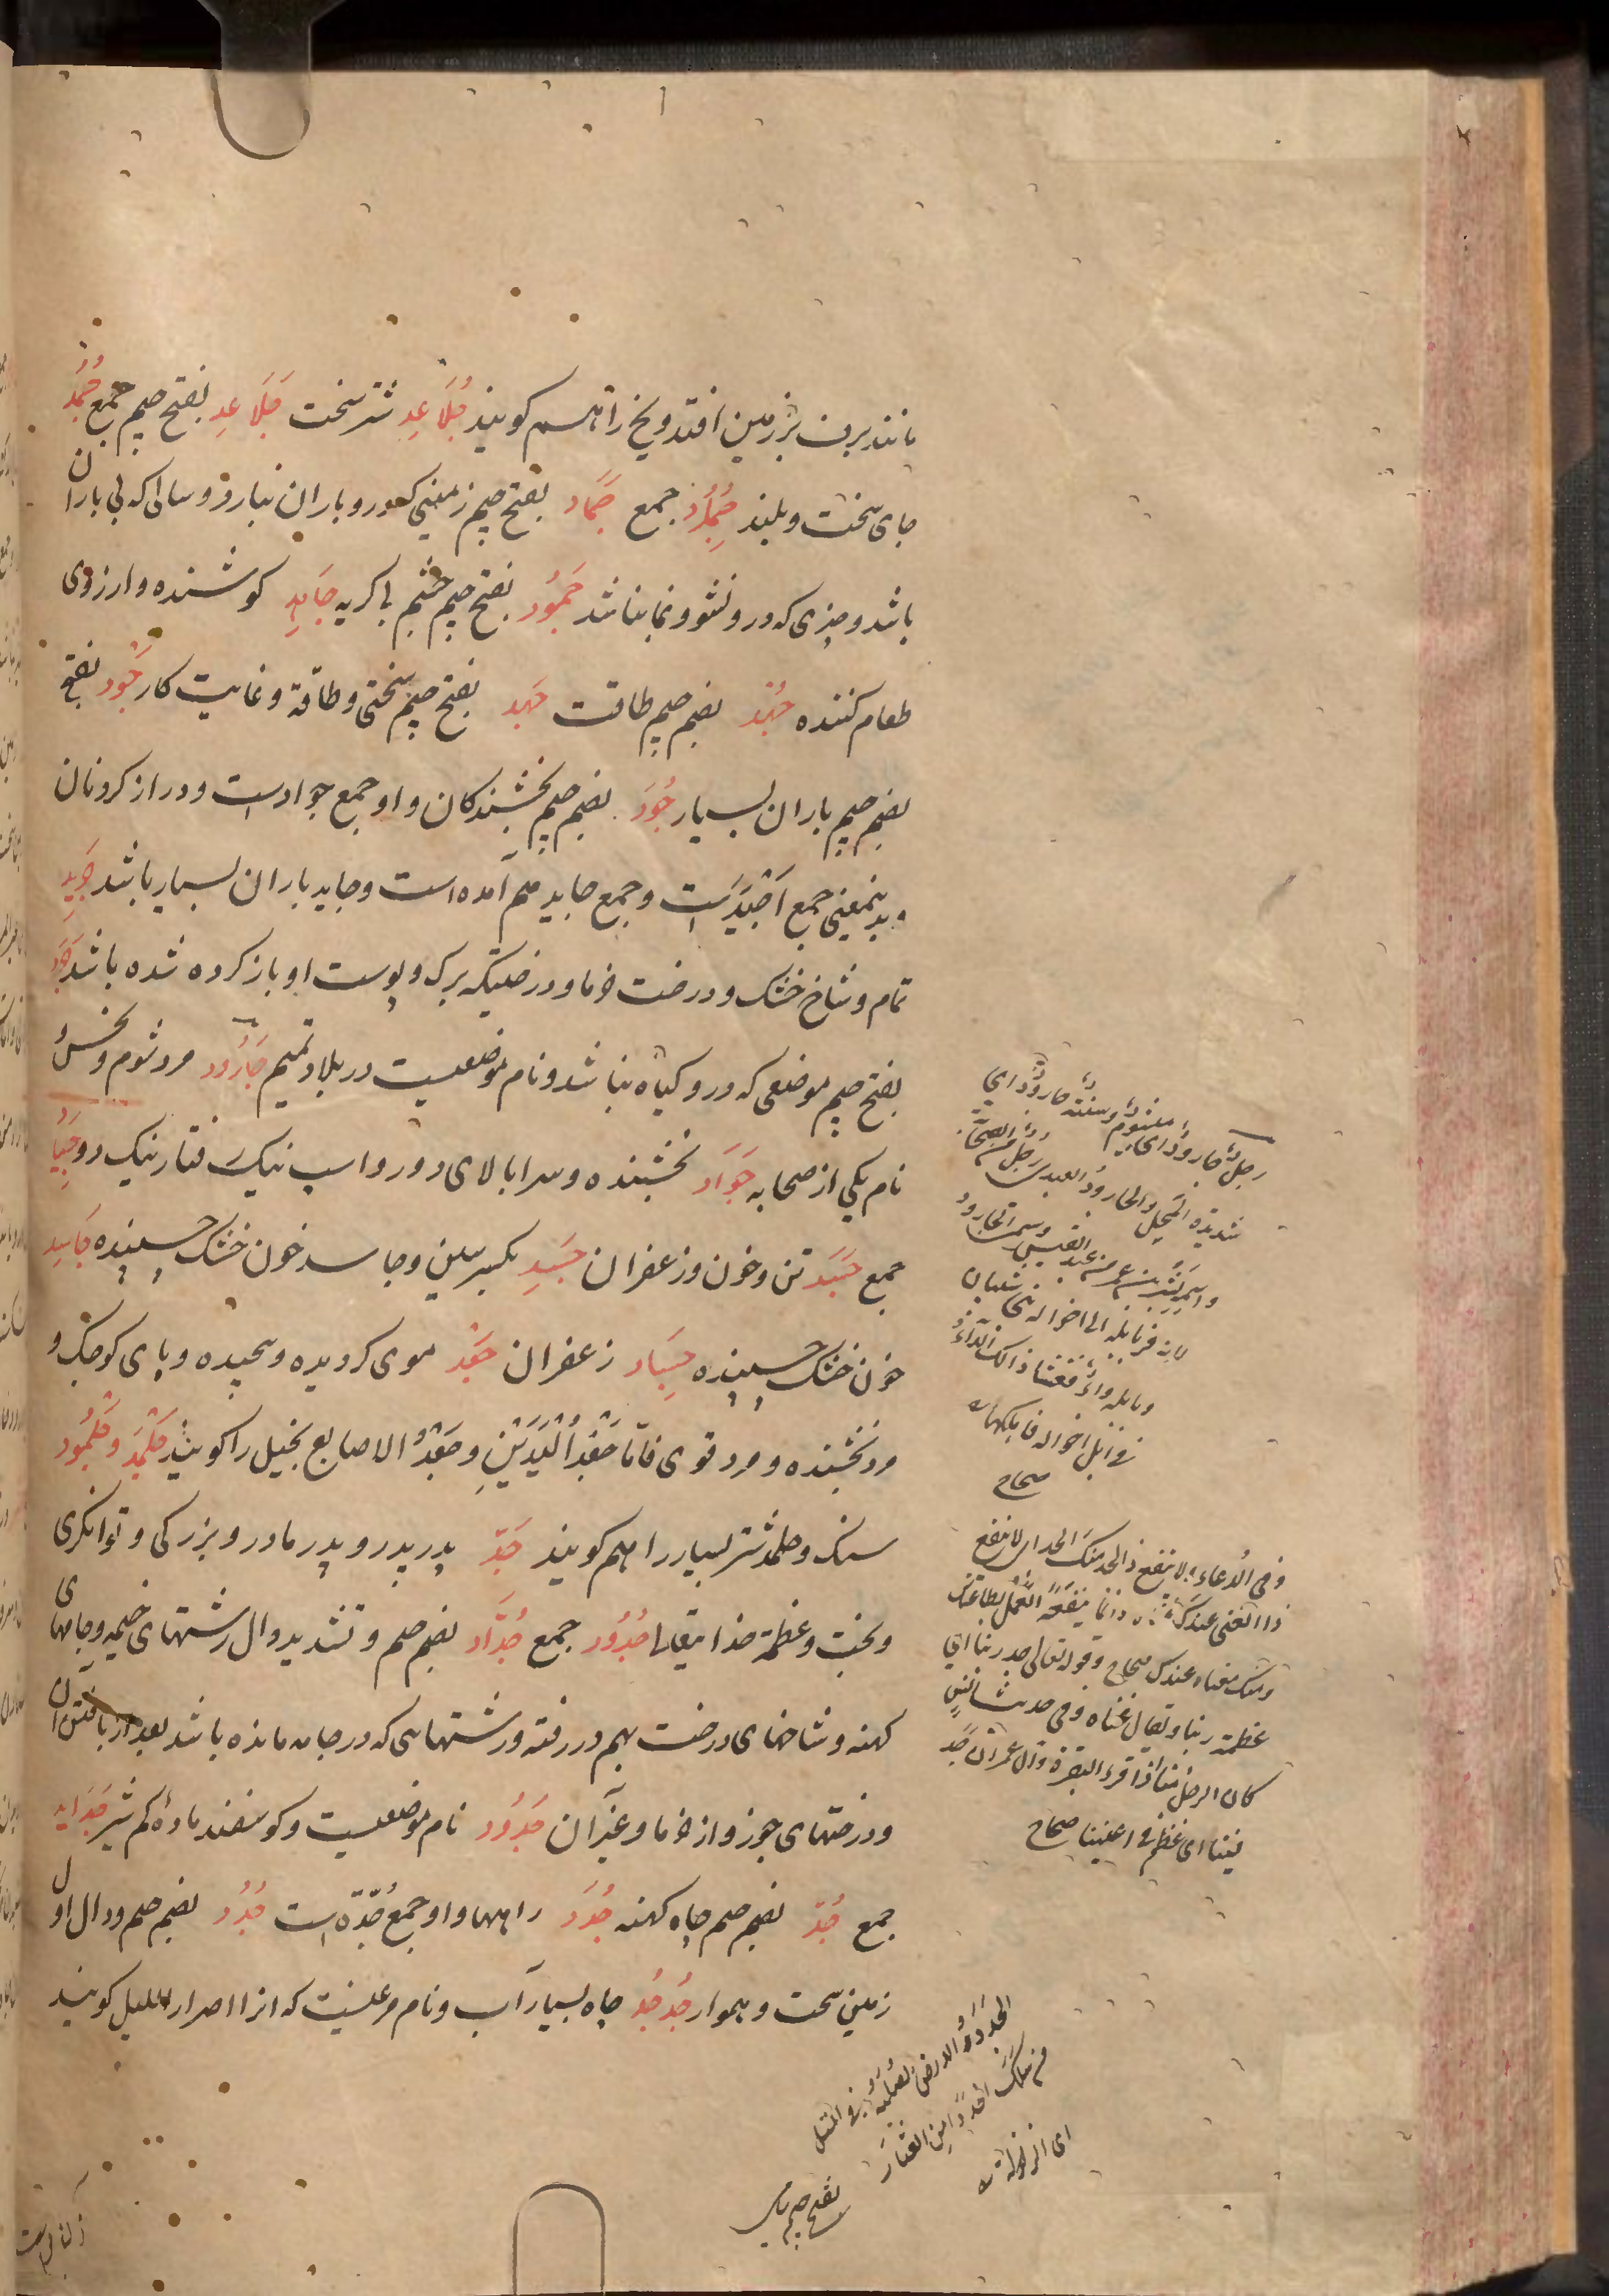 مانند برف بر زمین افتد ویخ را هم کویند جُلَاعِد شتر سخت جَلَاعِد بفتح جیم جمع جُمُد
جای سخت و بلند جِمَاد جمع جَمَاد بفتح جیم زمینی که درو باران نبارد و سالی که بی باران
باشد و چیزی که درو نشو و نما نباشد جَمُود بفتح جیم چشم بی کریه جَاهِد کوشنده و ارزوی
طعام کننده جُهْد بضم جیم طاقت جَهد بفتح جیم سختی و طاقة و غایت کار جَود بفتح
بضم جیم باران بسیار جُود بضم جیم بخشندکان و او جمع جوادست و دراز کردنان
و بدینمعنی جمع اَجْیَد است و جمع جاید هم آمده است و جاید باران بسیار باشد جَرِید
تمام و شاخ خشک و درخت خرما و درختیکه برک و پوست او باز کرده شده باشد جَرَد
بفتح جیم موضعی که درو کیاه نباشد و نام موضعیست در بلاد تمیم جَارُود مرد شوم و نحس
نام یکی از صحابه جَوَاد بخشنده و سرا بالای دور و اسپ نیک رفتار نیک رو جِیَاد
جمع جَسَد تن و خون و زعفران جَسِد بکسر سین و جاسد خون خشک چسپنده جَاسِد
خون خشک چسپنده جِسَاد زعفران جَعْد موی کردیده و پیچیده و پای کوچک و
مرد بخشنده و مرد قوی فامّا جَعْدُ الْیَدَیْنِ و جَعْدُ الاصابع بخیل را کویند جَلْمَد و جَلْمُود
سنک و جلمد شتر بسیار را هم کویند جَدّ پدر پدر و پدر مادر و بزرکی و توانکری
و بخت و عظمة خدایتعالی جُدُود جمع جُدَّاد بضم جیم و تشدید دال رشتهای خیمه و جامهای
کهنه و شاخهای درخت بهم در رفته و رشتهایی که در جامه مانده باشد بعد از بافتن آن
و درختهای جوز و از خرما و غیر آن جَدُود نام موضعیست و کوسفند ماده کم شیر جَدَاید
جمع جُدّ بضم جیم چاه کهنه جُدَد راهها و او جمع جُدّه است جُدُد بضم جیم و دال اول
زمین سخت و هموار جُدجُد چاه بسیار آب و نام مرغیست که انرا صرار اللیل کویند
رجل جارود ای مشئوم وسنة جارود ای
شدیدة المحل والجارود العبدی رجل من الصحابة
واسمه بشر بن عمرو من عبد القیس وسمی الجارود
لانه فر بابله الی اخواله بنی شیبان
وبابله داء ففشا ذالک الداء
فی ابل اخواله فاهلکها
صحاح
وفی الدعاء ولا ینفع ذا الجد منک الجد ای لا ینفع
ذا الغنی عندک غناه وانما ینفعه العمل بطاعتک
ومنک معناه عندک صحاح وقوله تعالی جد ربنا ای
عظمة ربنا ویقال غناه وفی حدیث انس
کان الرجل منا اذا قرء البقرة وال عمران جد
فینا ای عظم فی اعیننا صحاح
الجدد الارض الصلبة وفی المثل
من سلک الجدد امن العثار
بفتح جیم